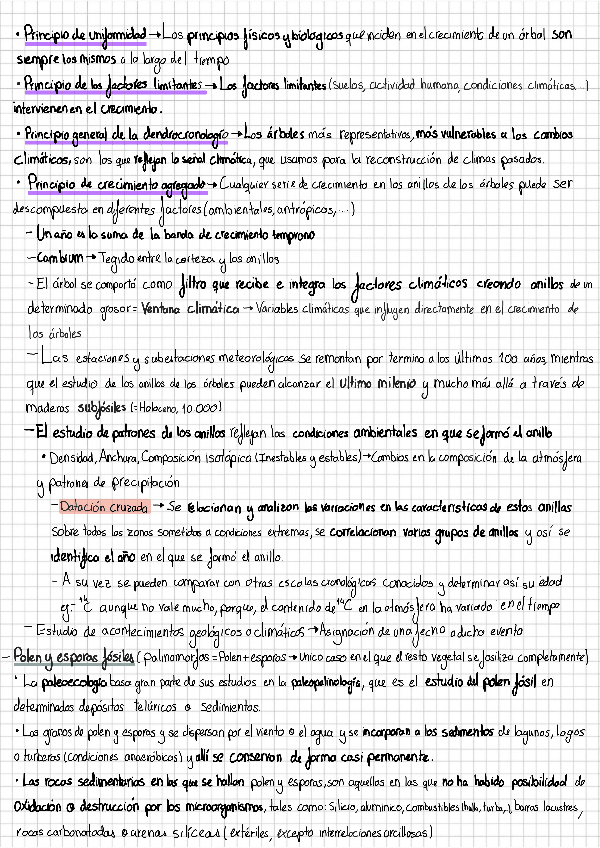 • Principio de uniformidad → Los principios físicos y biológicos que inciden en el crecimiento de un árbol son
siempre los mismos a lo largo del tiempo
• Principio de los factores limitantes → Los factores limitantes (suelos, actividad humana, condiciones climáticas...)
intervienen en el crecimiento.
• Principio general de la dendrocronología → Los árboles más representativos, más vulnerables a los cambios
climáticos, son los que reflejan la señal climática, que usamos para la reconstrucción de climas pasados.
• Principio de crecimiento agregado → Cualquier serie de crecimiento en los anillos de los árboles puede ser
descompuesto en diferentes factores (ambientales, antrópicos,...)
- Un año es la suma de la banda de crecimiento temprono
- Cambium → Tegido entre la corteza y los anillos
- El árbol se comporta como filtro que recibe e integra los factores climáticos creando anillos de un
determinado grosor = Ventana climática → Variables climáticas que influyen directamente en el crecimiento de
los árboles
- Las estaciones y subestaciones meteorológicas se remontan por termino a los últimos 100 años, mientras
que el estudio de los anillos de los árboles pueden alcanzar el último milenio y mucho más allá a través de
maderas subfósiles (=Holoceno, 10.000)
- El estudio de patrones de los anillos reflejan las condiciones ambientales en que se formó el anillo
• Densidad, Anchura, Composición Isotópica (Inestables y estables) → Cambios en la composición de la atmósfera
y patrones de precipitación
- Datación cruzada → Se relacionan y analizan las variaciones en las características de estos anillos
sobre todos los zonas sometidos a condiciones extremas, se correlacionan varios grupos de anillos y así se
identifica el año en el que se formó el anillo.
- A su vez se pueden comparar con otras escalas cronológicas conocidas y determinar así su edad
ej- ¹⁴C aunque no vale mucho, porque, el contenido de ¹⁴C en la atmósfera ha variado en el tiempo
- Estudio de acontecimientos geológicos o climáticos → Asignación de una fecha a dicho evento
- Polen y esporas fósiles (palinomorfos = Polen + esporas → Unico caso en el que el resto vegetal se fosiliza completamente)
• La paleoecología basa gran parte de sus estudios en la paleopalinología, que es el estudio del polen fósil en
determinados depósitos telúricos o sedimentos.
• Los granos de polen y esporas y se dispersan por el viento o el agua y se incorporan a los sedimentos de lagunas, lagos
o turberas (condiciones anaeróbicas) y allí se conservan de forma casi permanente.
• Las rocas sedimentarias en las que se hallan polen y esporas, son aquellas en las que no ha habido posibilidad de
oxidación o destrucción por los microorganismos, tales como: Silicio, alumínico, combustibles (hulla, turba,..), barros lacustres,
rocas carbonatadas o arenas silíceas (estériles, excepto interrelaciones arcillosas)